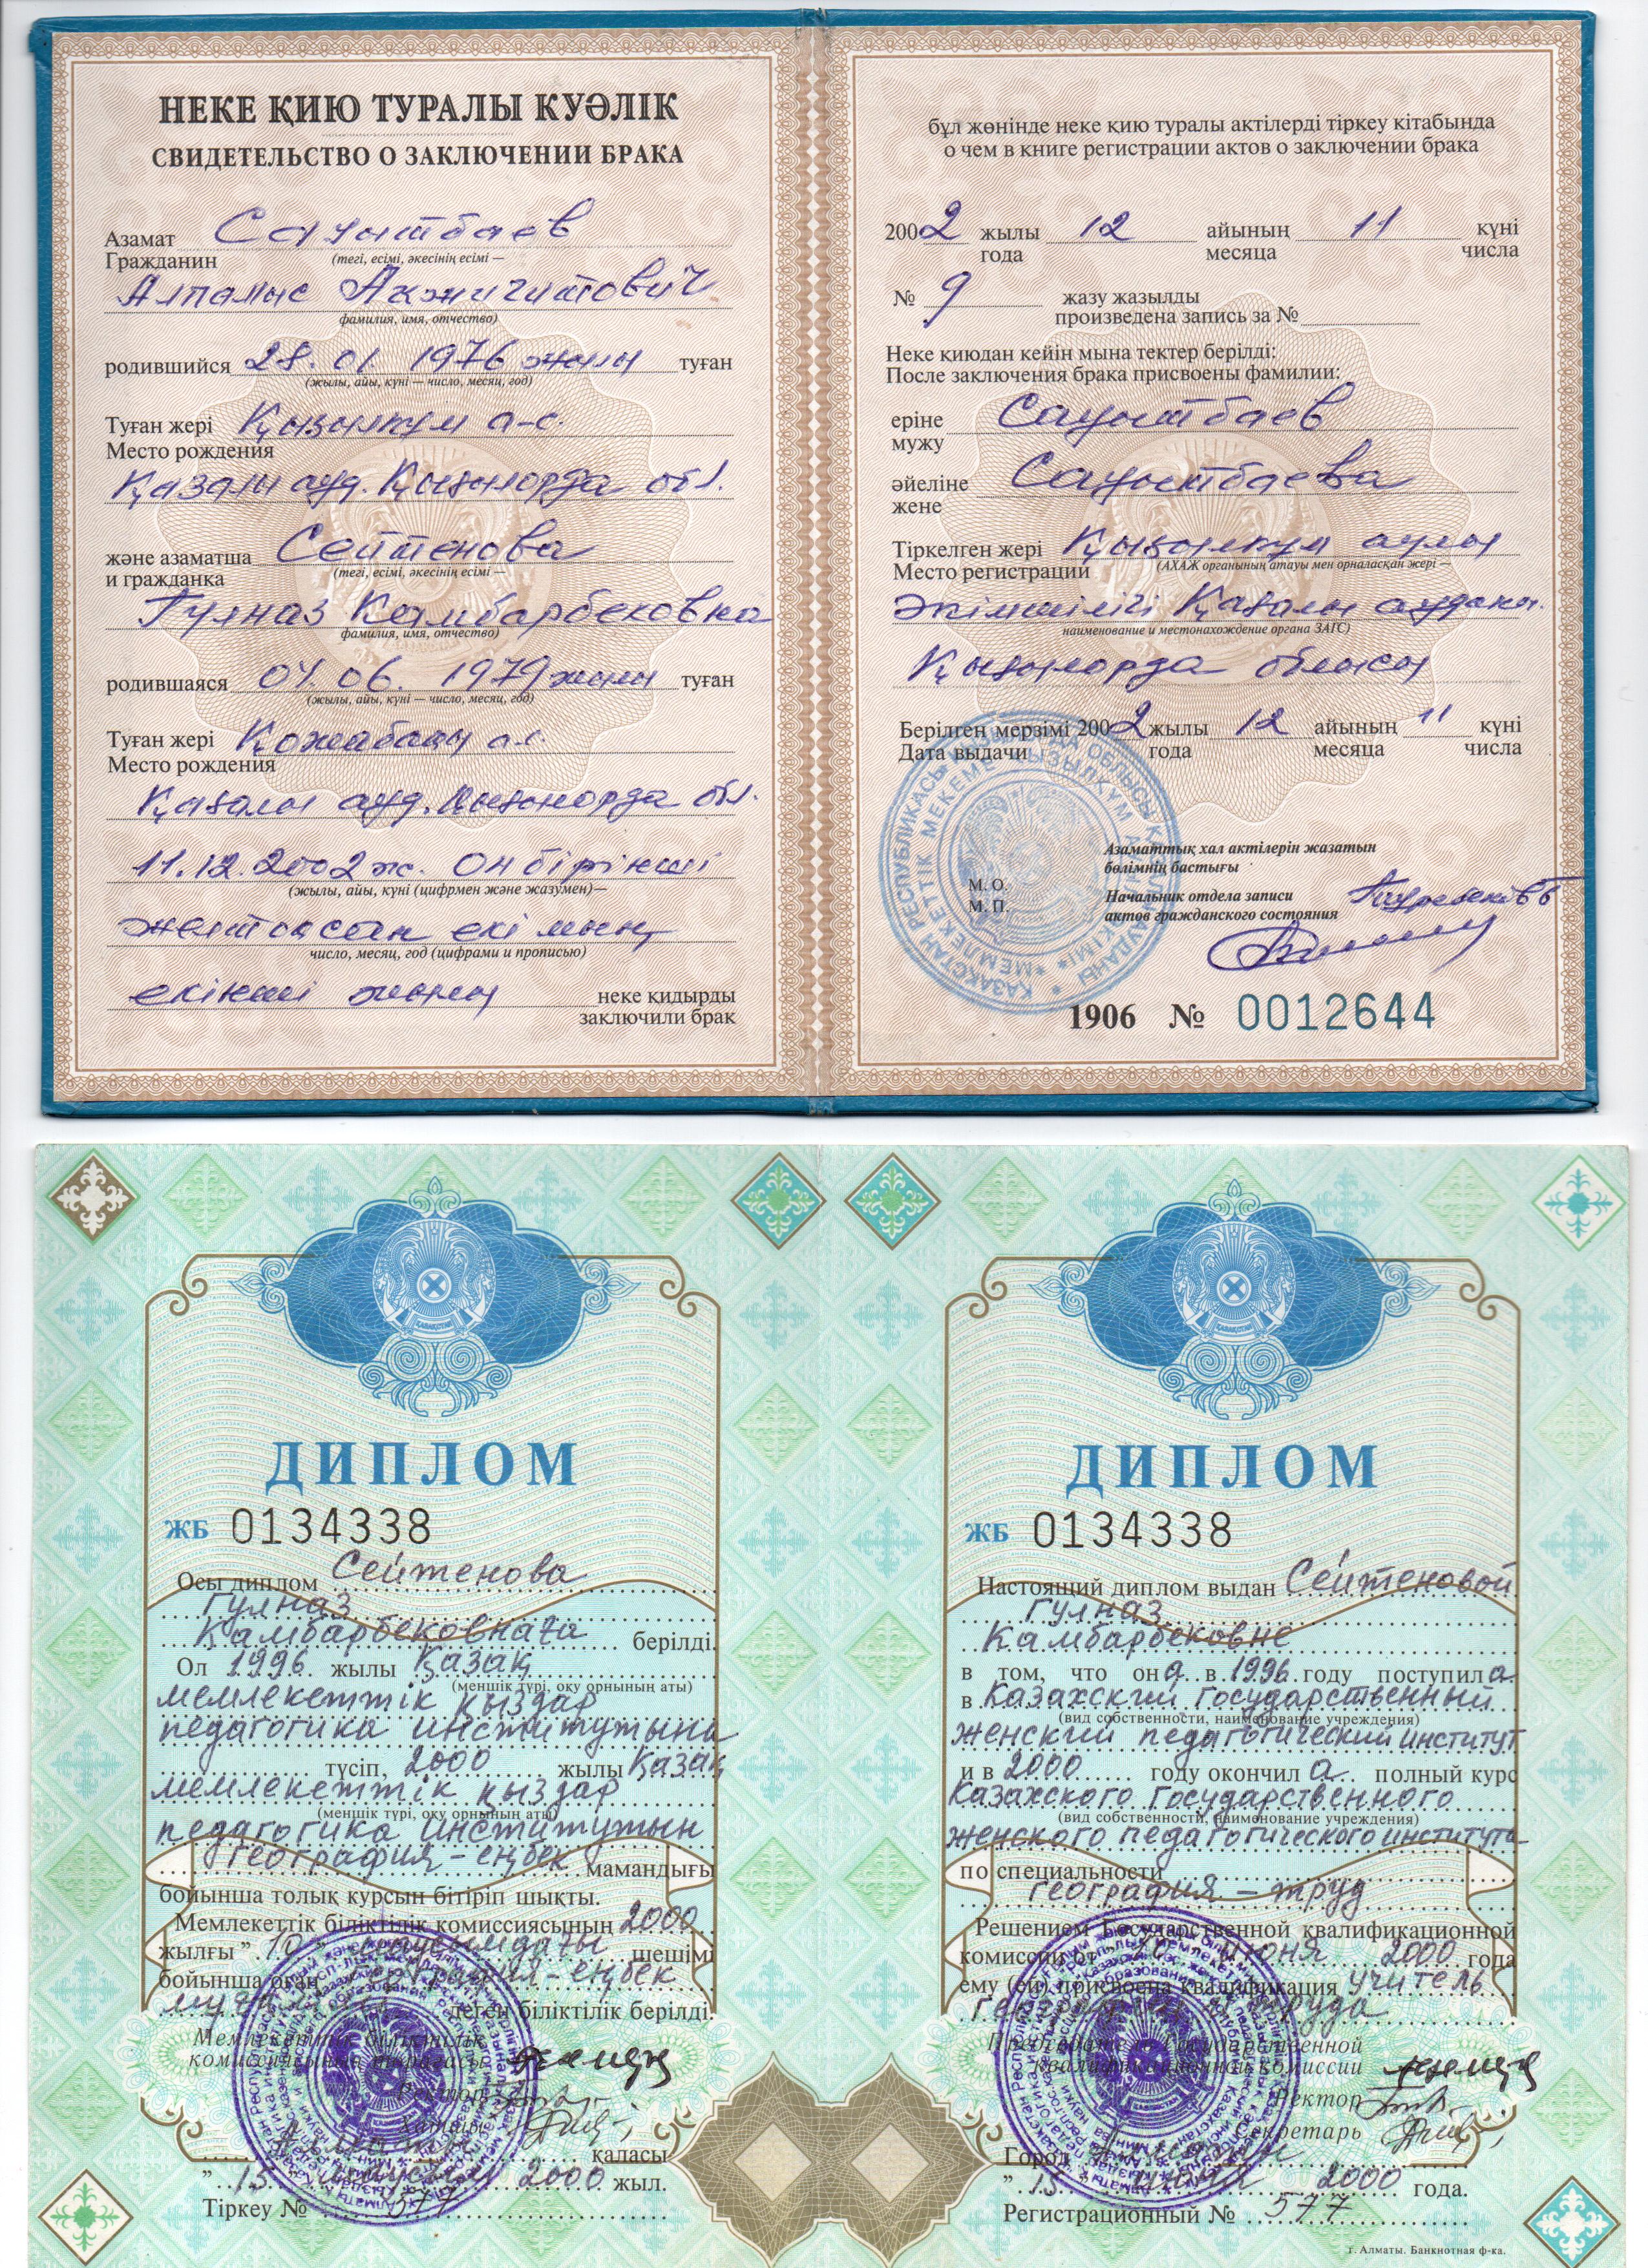 НЕКЕ ҚИЮ ТУРАЛЫ КУӘЛІК
СВИДЕТЕЛЬСТВО О ЗАКЛЮЧЕНИИ БРАКА
Азамат Сауытбаев
Гражданин (тегі, есімі, әкесінің есімі —
Алпамыс Акжигитович
фамилия, имя, отчество)
родившийся 28.01.1976 жылы туған
(жылы, айы, күні — число, месяц, год)
Туған жері Қызылкум а-с.
Место рождения
Қазалы ауд. Қызылорда обл.
және азаматша Сейтенова
и гражданка (тегі, есімі, әкесінің есімі —
Гулназ Камбарбековна
фамилия, имя, отчество)
родившаяся 04.06.1979 жылы туған
(жылы, айы, күні — число, месяц, год)
Туған жері Қожабақы а.с.
Место рождения
Қазалы ауд. Қызылорда обл.
11.12.2002 ж. Он бірінші
(жылы, айы, күні (цифрмен және жазумен)—
желтоқсан екі мың
число, месяц, год (цифрами и прописью)
екінші жылы неке қидырды
заключили брак
бұл жөнінде неке қию туралы актілерді тіркеу кітабында
о чем в книге регистрации актов о заключении брака
2002 жылы 12 айының 11 күні
года месяца числа
№ 9 жазу жазылды
произведена запись за №
Неке қиюдан кейін мына тектер берілді:
После заключения брака присвоены фамилии:
еріне Сауытбаев
мужу
әйеліне Сауытбаева
жене
Тіркелген жері Қызылкум ауылы
Место регистрации (АХАЖ органының атауы мен орналасқан жері —
әкімшілігі Қазалы ауданы.
наименование и местонахождение органа ЗАГС)
Қызылорда облысы
Берілген мерзімі 2002 жылы 12 айының 11 күні
Дата выдачи года месяца числа
Азаматтық хал актілерін жазатын
бөлімнің бастығы
М. О.
М. П.
Начальник отдела записи
актов гражданского состояния
1906 № 0012644
ДИПЛОМ
ЖБ 0134338
Осы диплом Сейтенова
Гулназ
Қамбарбековнаға берілді.
Ол 1996 жылы Қазақ
(меншік түрі, оқу орнының аты)
мемлекеттік қыздар
педагогика институтына
түсіп, 2000 жылы Қазақ
мемлекеттік қыздар
(меншік түрі, оқу орнының аты)
педагогика институтын
география - еңбек мамандығы
бойынша толық курсын бітіріп шықты.
Мемлекеттік біліктілік комиссиясының 2000
жылғы "10" маусымдағы шешімі
бойынша оған география - еңбек
мұғалімі деген біліктілік берілді.
Мемлекеттік біліктілік
комиссиясының төрағасы
Ректор
Хатшы
Алматы қаласы
"15" маусым 2000 жыл.
Тіркеу № 577
ДИПЛОМ
ЖБ 0134338
Настоящий диплом выдан Сейтеновой
Гулназ
Камбарбековне
в том, что она в 1996 году поступила
в Казахский Государственный
(вид собственности, наименование учреждения)
женский педагогический институт
и в 2000 году окончила полный курс
Казахского Государственного
(вид собственности, наименование учреждения)
женского педагогического института
по специальности
география - труд
Решением Государственной квалификационной
комиссии от "10" июня 2000 года
ему (ей) присвоена квалификация учитель
географии и труда
Председатель Государственной
квалификационной комиссии
Ректор
Секретарь
Город Алматы
"15" июня 2000 года.
Регистрационный № 577
г. Алматы. Банкнотная ф-ка.